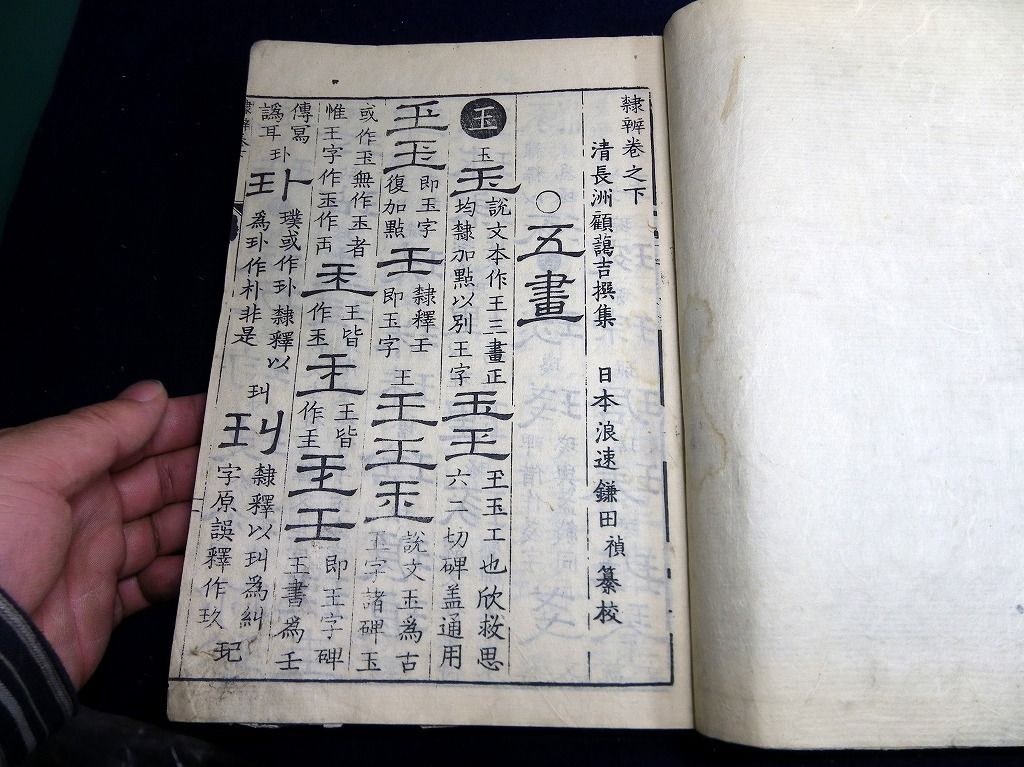 隸辨卷之下
清長洲顧藹吉撰集 日本浪速鎌田禎纂校
○五畫
玉 玉 玉 說文本作王三畫正
均隸加點以別王字 玉 玉 玊玉工也欣救思
六二切碑盖通用
玉 玉 即玉字
復加點 王 隸釋王
即玉字 王 王 王 玉 說文玉為古
王字諸碑玉
或作玉無作玉者
惟王字作玉作
王 王皆
作玉 王 王皆
作 王 王 即王字碑
王書為壬
傳寫
譌耳 圤 圤 璞或作圤隸釋以
為圤作朴非是 玌 玌 隸釋以玌為糾
字原誤釋作玖 玘